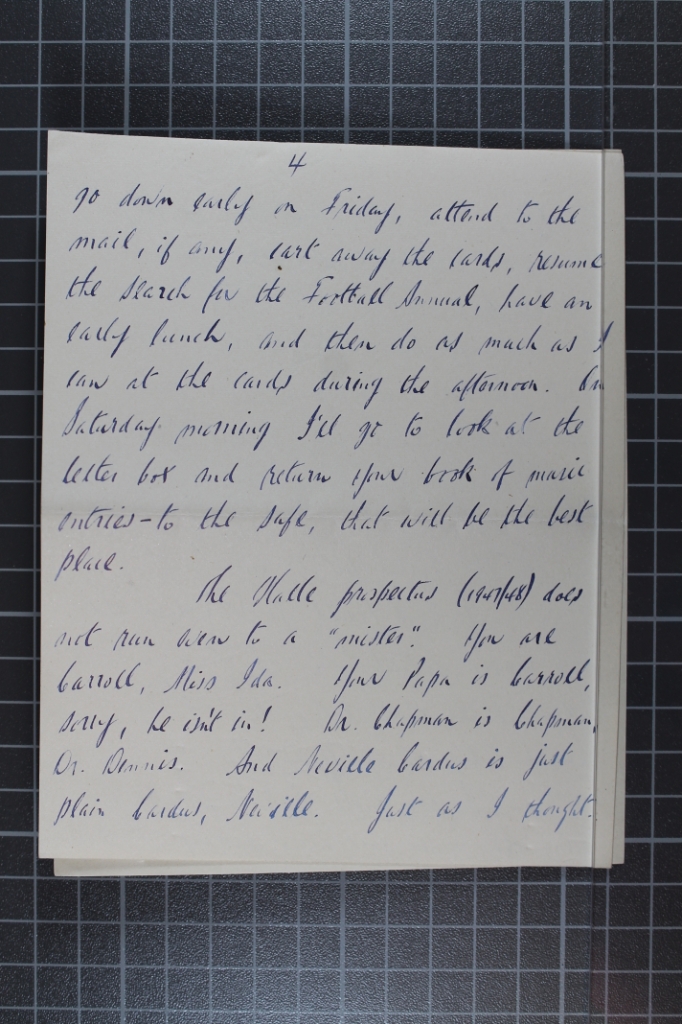 4
go down early on Friday, attend to the
mail, if any, cart away the cards, resume
the search for the Football Annual, have an
early lunch, and then do as much as I
can at the cards during the afternoon. On
Saturday morning I'll go to look at the
letter box and return your book of music
entries - to the safe, that will be the best
place.
The Halle prospectus (1947/48) does
not run even to a "mister". You are
Carroll, Miss Ida. Your Papa is Carroll,
sorry, he isn't in! Dr. Chapman is Chapman,
Dr. Dennis. And Neville Cardus is just
plain Cardus, Neville. Just as I thought.